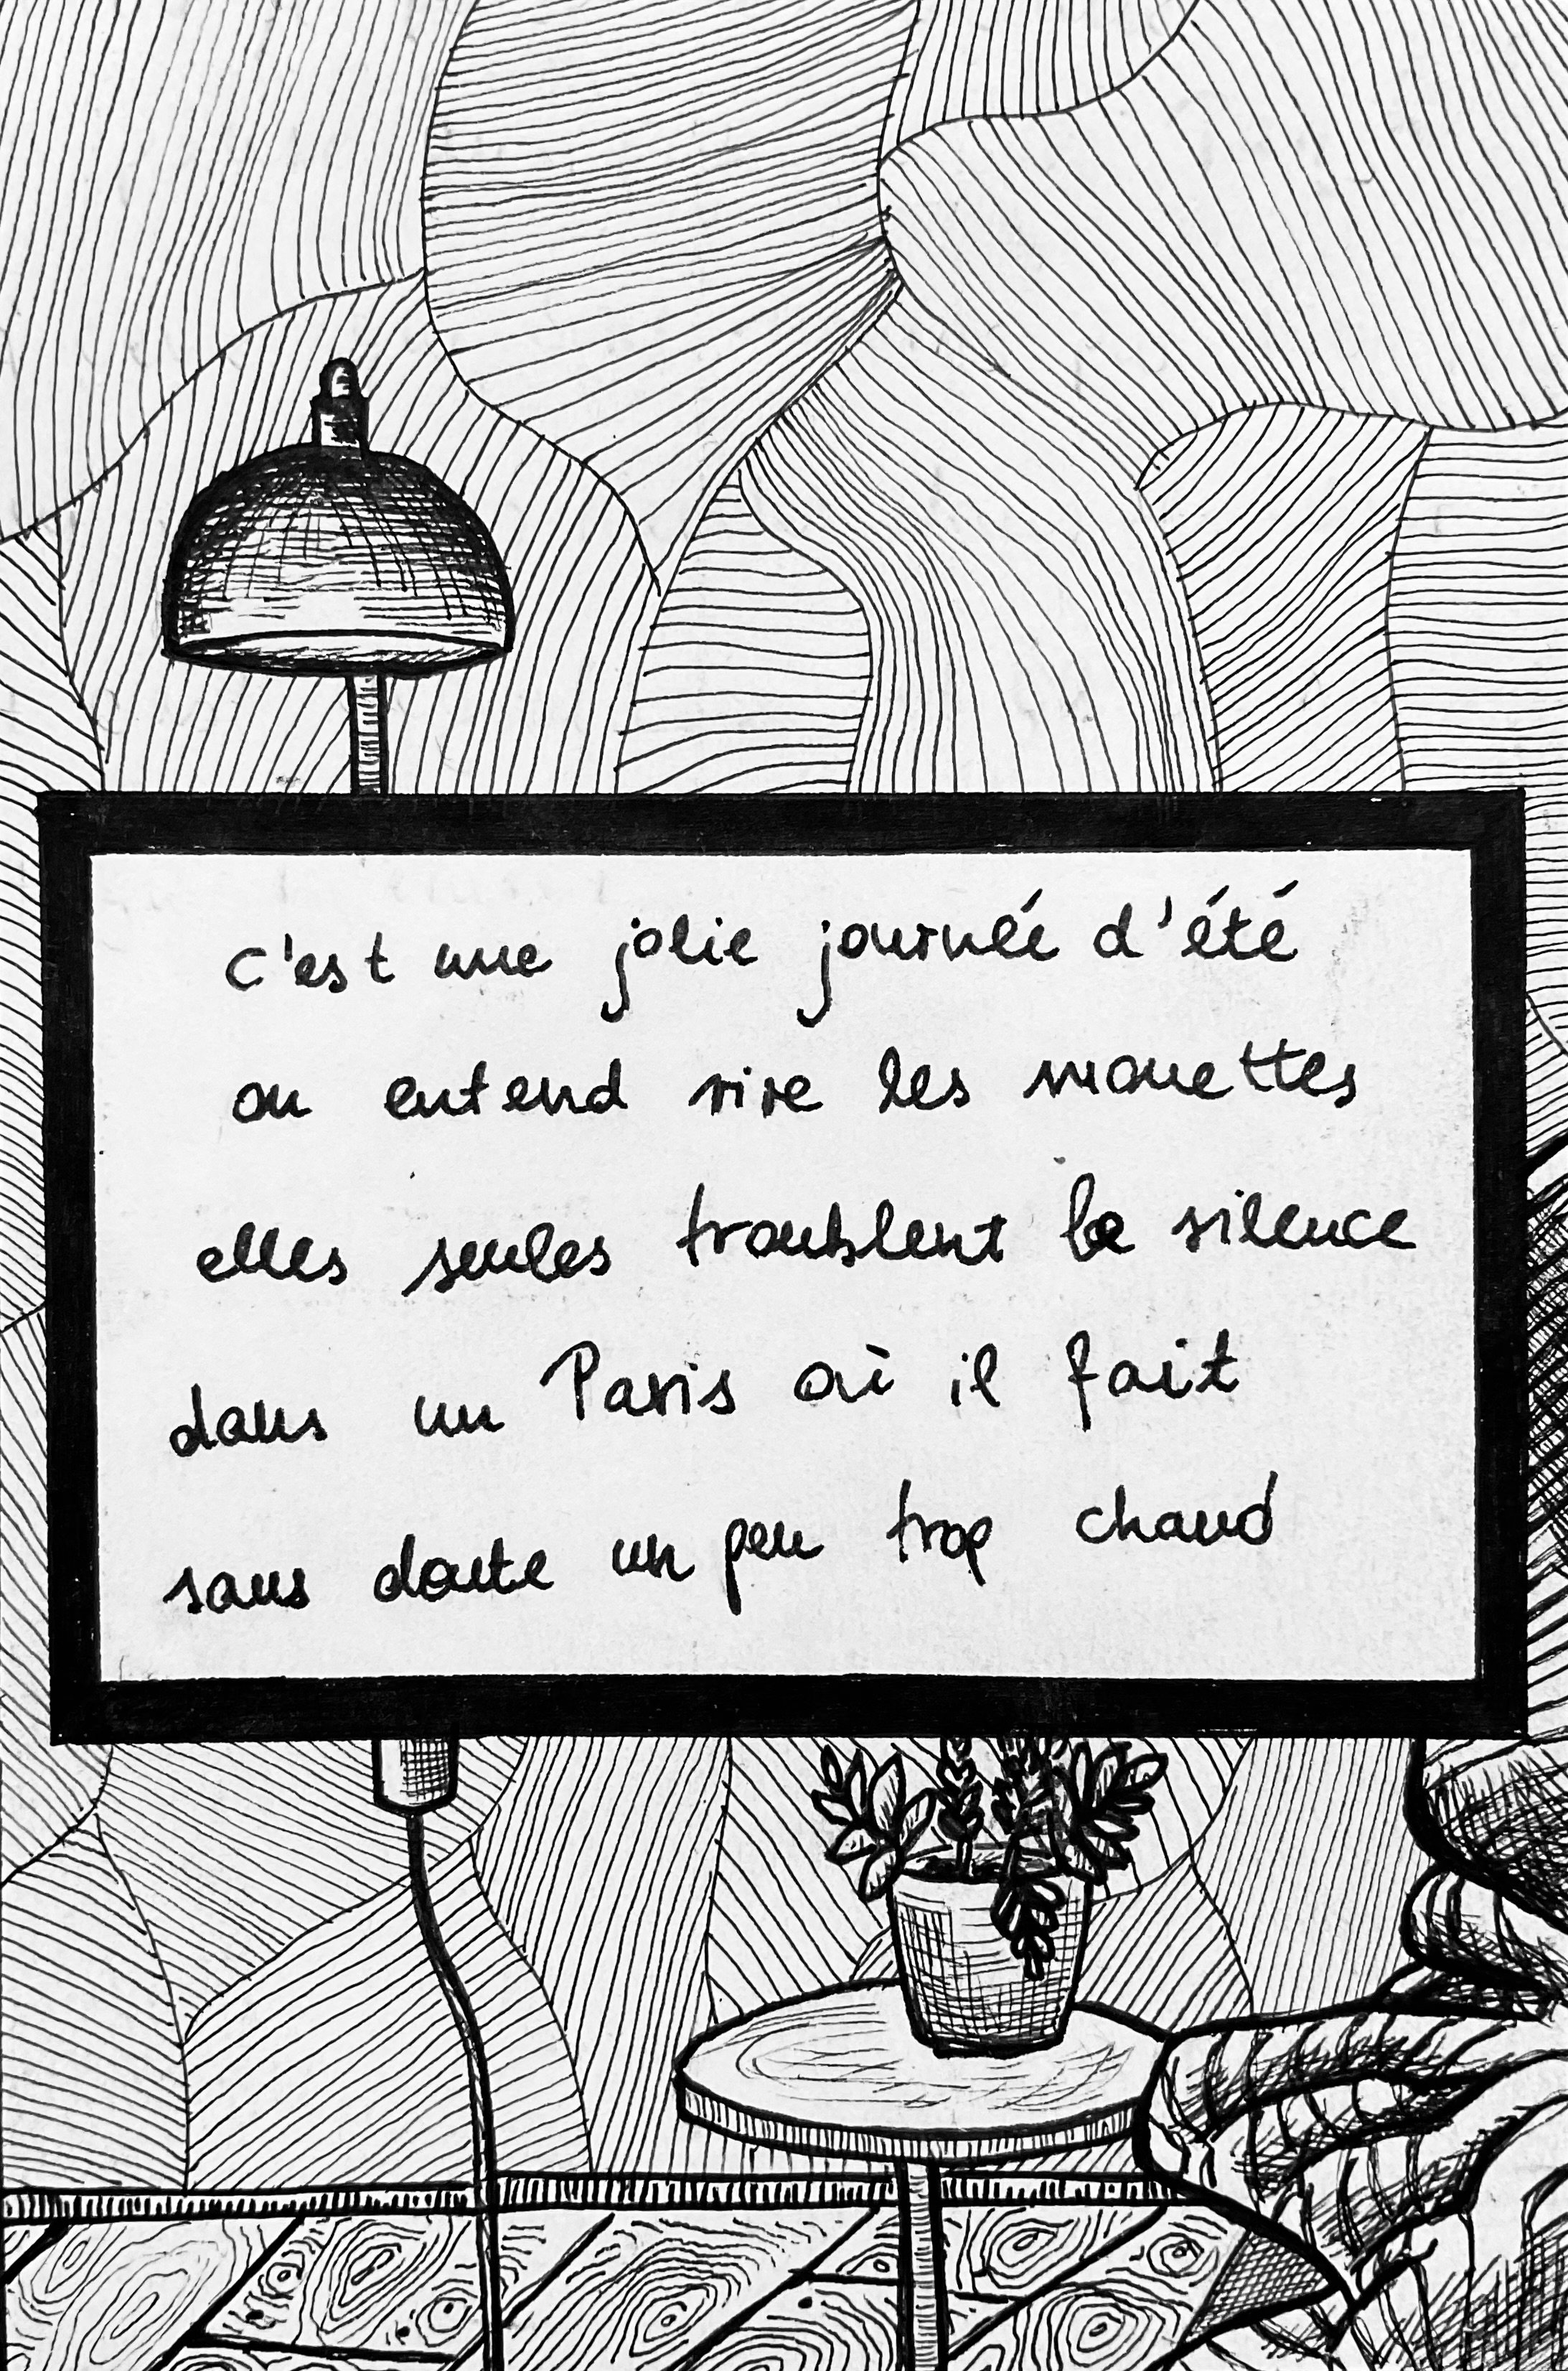 c'est une jolie journée d'été
on entend rire les mouettes
elles seules troublent le silence
dans un Paris où il fait
sans doute un peu trop chaud